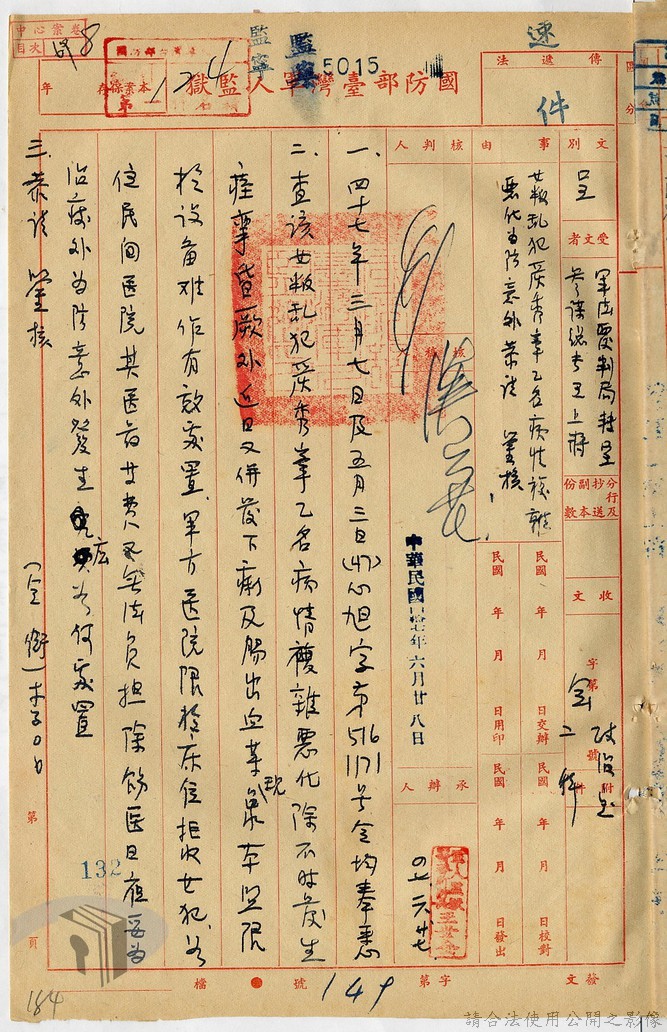 中心案卷
目次
8
本案保存
年
第
124
監寧
監寧
5015
國防部臺灣軍人監獄
速
件
傳遞法
區分
文別
呈
受文者
軍法覆判局轉呈
參謀總長王上將
事由
女叛乱犯 秀 乙名病情複雜
惡化為防意外恭請 鑒核
核判人
核稿人
分行及抄送副本份數
收文
字第
號
附件
民國 年 月 日交辦
民國 年 月 日校對
民國 年 月 日用印
民國 年 月 日發出
中華民國四拾七年六月廿八日
承辦人
四七 六 廿七
一、四十七年三月七日及五月三日(47)心旭字第516 1171号令均奉悉
二、查該女叛乱犯 秀 乙名病情複雜惡化除不時發生
痙攣昏厥外近日又併發下痢及腸出血等現象本監限
於设备难作有效處置、軍方医院限於床位拒收女犯、
住民间医院其医药 費 無法負担除飭医日夜妥為
治療外為防意外發生 應如何處置
三、恭請 鑒核
(全銜)李〇〇
第
頁
132
184
檔
號
149
字第
發文
請合法使用公開之影像